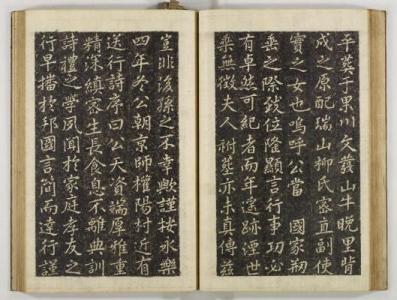 平葬于果川文發山牛晚里背
成之原配瑞山柳氏密直副使
實之女也嗚呼公當 國家刱
業之際敭位隆顯言行事功必
有卓然可紀者而年遠跡湮世
乘無徵夫人祔葬亦未真傳茲
豈非後孫之不幸歟謹按永樂
四年冬公朝京師權陽村近有
送行詩序曰公天資端厚雅重
精深縝密生長食息不離典訓
詩禮之學夙聞於家庭孝友之
行早播於邦國言簡而達行謹